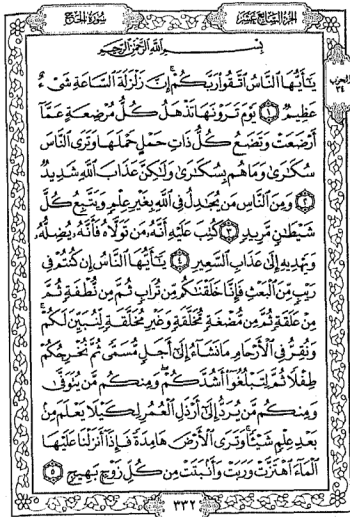 سُورَةُ الحَجِّ الجُزْءُ السَّابِعَ عَشَرَ
بِسْمِ اللَّهِ الرَّحْمَٰنِ الرَّحِيمِ
يَٰٓأَيُّهَا ٱلنَّاسُ ٱتَّقُوا۟ رَبَّكُمْ إِنَّ زَلْزَلَةَ ٱلسَّاعَةِ شَىْءٌ
عَظِيمٌ ١ يَوْمَ تَرَوْنَهَا تَذْهَلُ كُلُّ مُرْضِعَةٍ عَمَّآ
أَرْضَعَتْ وَتَضَعُ كُلُّ ذَاتِ حَمْلٍ حَمْلَهَا وَتَرَى ٱلنَّاسَ
سُكَٰرَىٰ وَمَا هُم بِسُكَٰرَىٰ وَلَٰكِنَّ عَذَابَ ٱللَّهِ شَدِيدٌ
٢ وَمِنَ ٱلنَّاسِ مَن يُجَٰدِلُ فِى ٱللَّهِ بِغَيْرِ عِلْمٍ وَيَتَّبِعُ كُلَّ
شَيْطَٰنٍ مَّرِيدٍ ٣ كُتِبَ عَلَيْهِ أَنَّهُۥ مَن تَوَلَّاهُ فَأَنَّهُۥ يُضِلُّهُۥ
وَيَهْدِيهِ إِلَىٰ عَذَابِ ٱلسَّعِيرِ ٤ يَٰٓأَيُّهَا ٱلنَّاسُ إِن كُنتُمْ فِى
رَيْبٍ مِّنَ ٱلْبَعْثِ فَإِنَّا خَلَقْنَٰكُم مِّن تُرَابٍ ثُمَّ مِن نُّطْفَةٍ ثُمَّ
مِنْ عَلَقَةٍ ثُمَّ مِن مُّضْغَةٍ مُّخَلَّقَةٍ وَغَيْرِ مُخَلَّقَةٍ لِّنُبَيِّنَ لَكُمْ
وَنُقِرُّ فِى ٱلْأَرْحَامِ مَا نَشَآءُ إِلَىٰٓ أَجَلٍ مُّسَمًّى ثُمَّ نُخْرِجُكُمْ
طِفْلًا ثُمَّ لِتَبْلُغُوٓا۟ أَشُدَّكُمْ وَمِنكُم مَّن يُتَوَفَّىٰ
وَمِنكُم مَّن يُرَدُّ إِلَىٰٓ أَرْذَلِ ٱلْعُمُرِ لِكَيْلَا يَعْلَمَ مِنۢ
بَعْدِ عِلْمٍ شَيْـًٔا وَتَرَى ٱلْأَرْضَ هَامِدَةً فَإِذَآ أَنزَلْنَا عَلَيْهَا
ٱلْمَآءَ ٱهْتَزَّتْ وَرَبَتْ وَأَنۢبَتَتْ مِن كُلِّ زَوْجٍۭ بَهِيجٍ ٥
الحزب
٣٤
٣٣٢